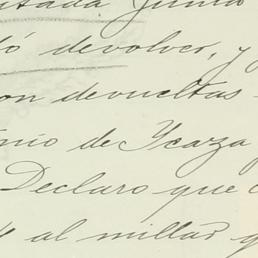 ntada Junta
ó devolver, y
on devueltas
nio de Ycaza
Declaro que
y al millar q